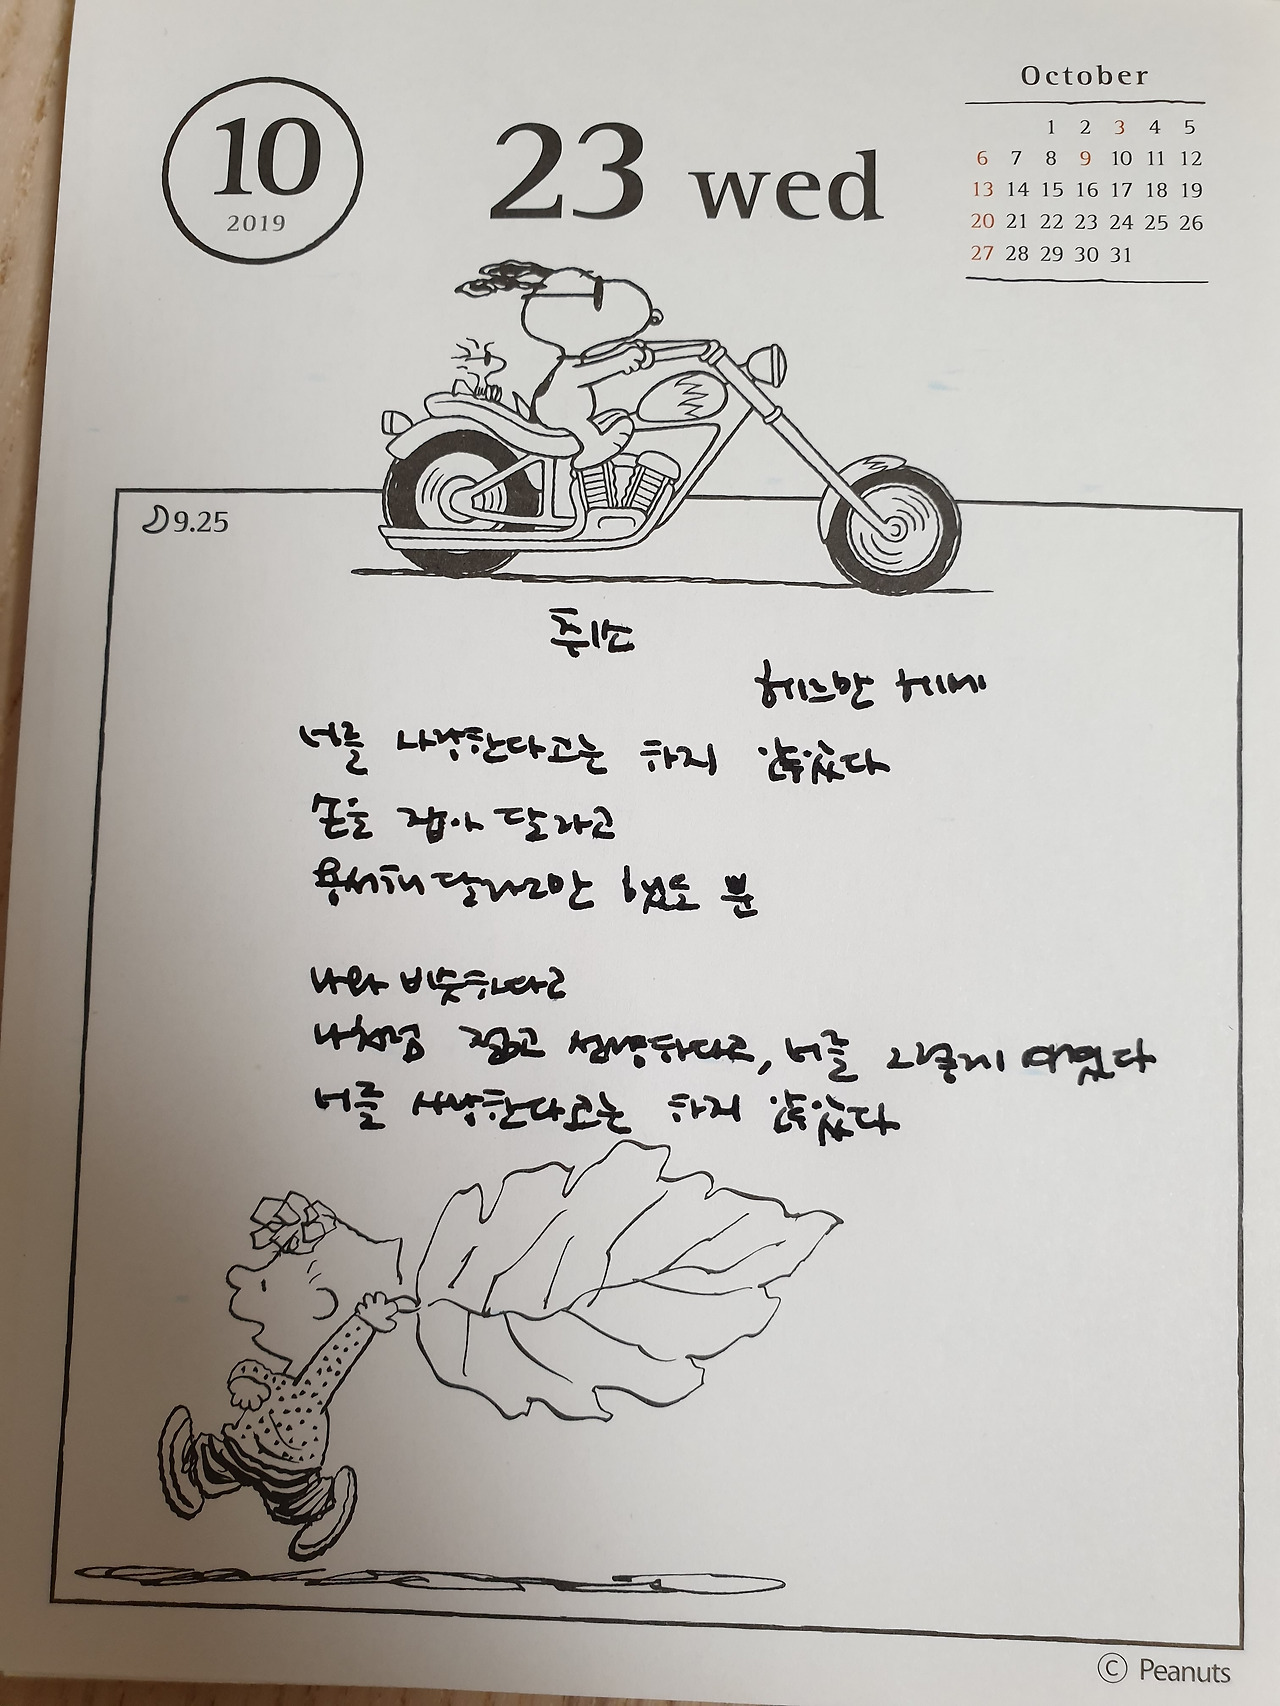 10
2019
23 wed
October
1 2 3 4 5
6 7 8 9 10 11 12
13 14 15 16 17 18 19
20 21 22 23 24 25 26
27 28 29 30 31
9.25
취소
헤르만 헤세
너를 사랑한다고는 하지 않았다
손을 잡아 달라고
용서해 달라고만 했을 뿐
나와 비슷하다고
나처럼 젊고 선량하다고, 너를 그렇게 여겼다
너를 사랑한다고는 하지 않았다
© Peanuts